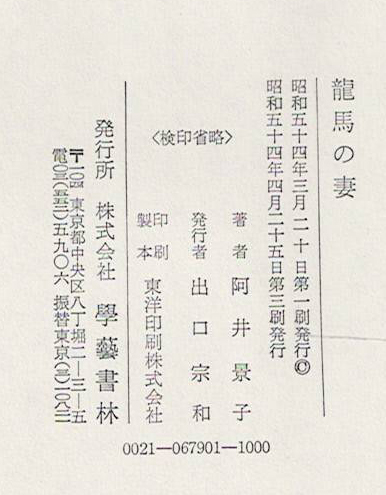 龍馬の妻
昭和五十四年三月二十日第一刷発行©
昭和五十四年四月二十五日第三刷発行
〈検印省略〉
著者 阿井景子
発行者 出口宗和
印刷製本 東洋印刷株式会社
発行所 株式会社 學藝書林
〒一〇四 東京都中央区八丁堀二―三―五
電〇三(五五二)五九〇六 振替東京(三)一〇八二
0021―067901―1000